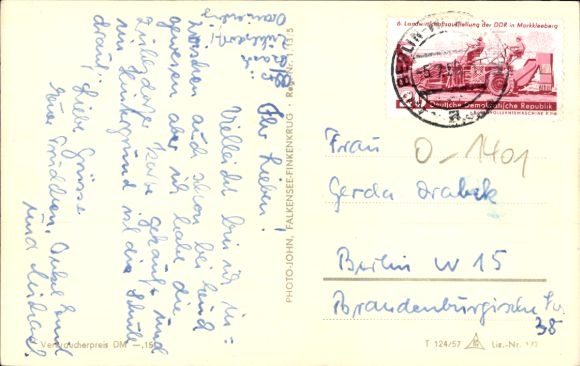 Ihr Lieben!
Vielleicht bin ich in-
zwischen auch schon bei Euch
gewesen aber ich habe die
Karte gekauft und
im Hintergrund ist die Schule
drauf. Liebe Grüsse
Eure Onkel
und Michael.
PHOTO-JOHN, FALKENSEE-FINKENKRUG · Reg.-Nr. I/13/5
Verbraucherpreis DM –,15
6. Landwirtschaftsausstellung der DDR in Markkleeberg
BERLIN
Deutsche Demokratische Republik
20
Frau
O-1401
Gerda Drabek
Berlin W 15
Brandenburgische Str.
38
T 124/57
Liz.-Nr.